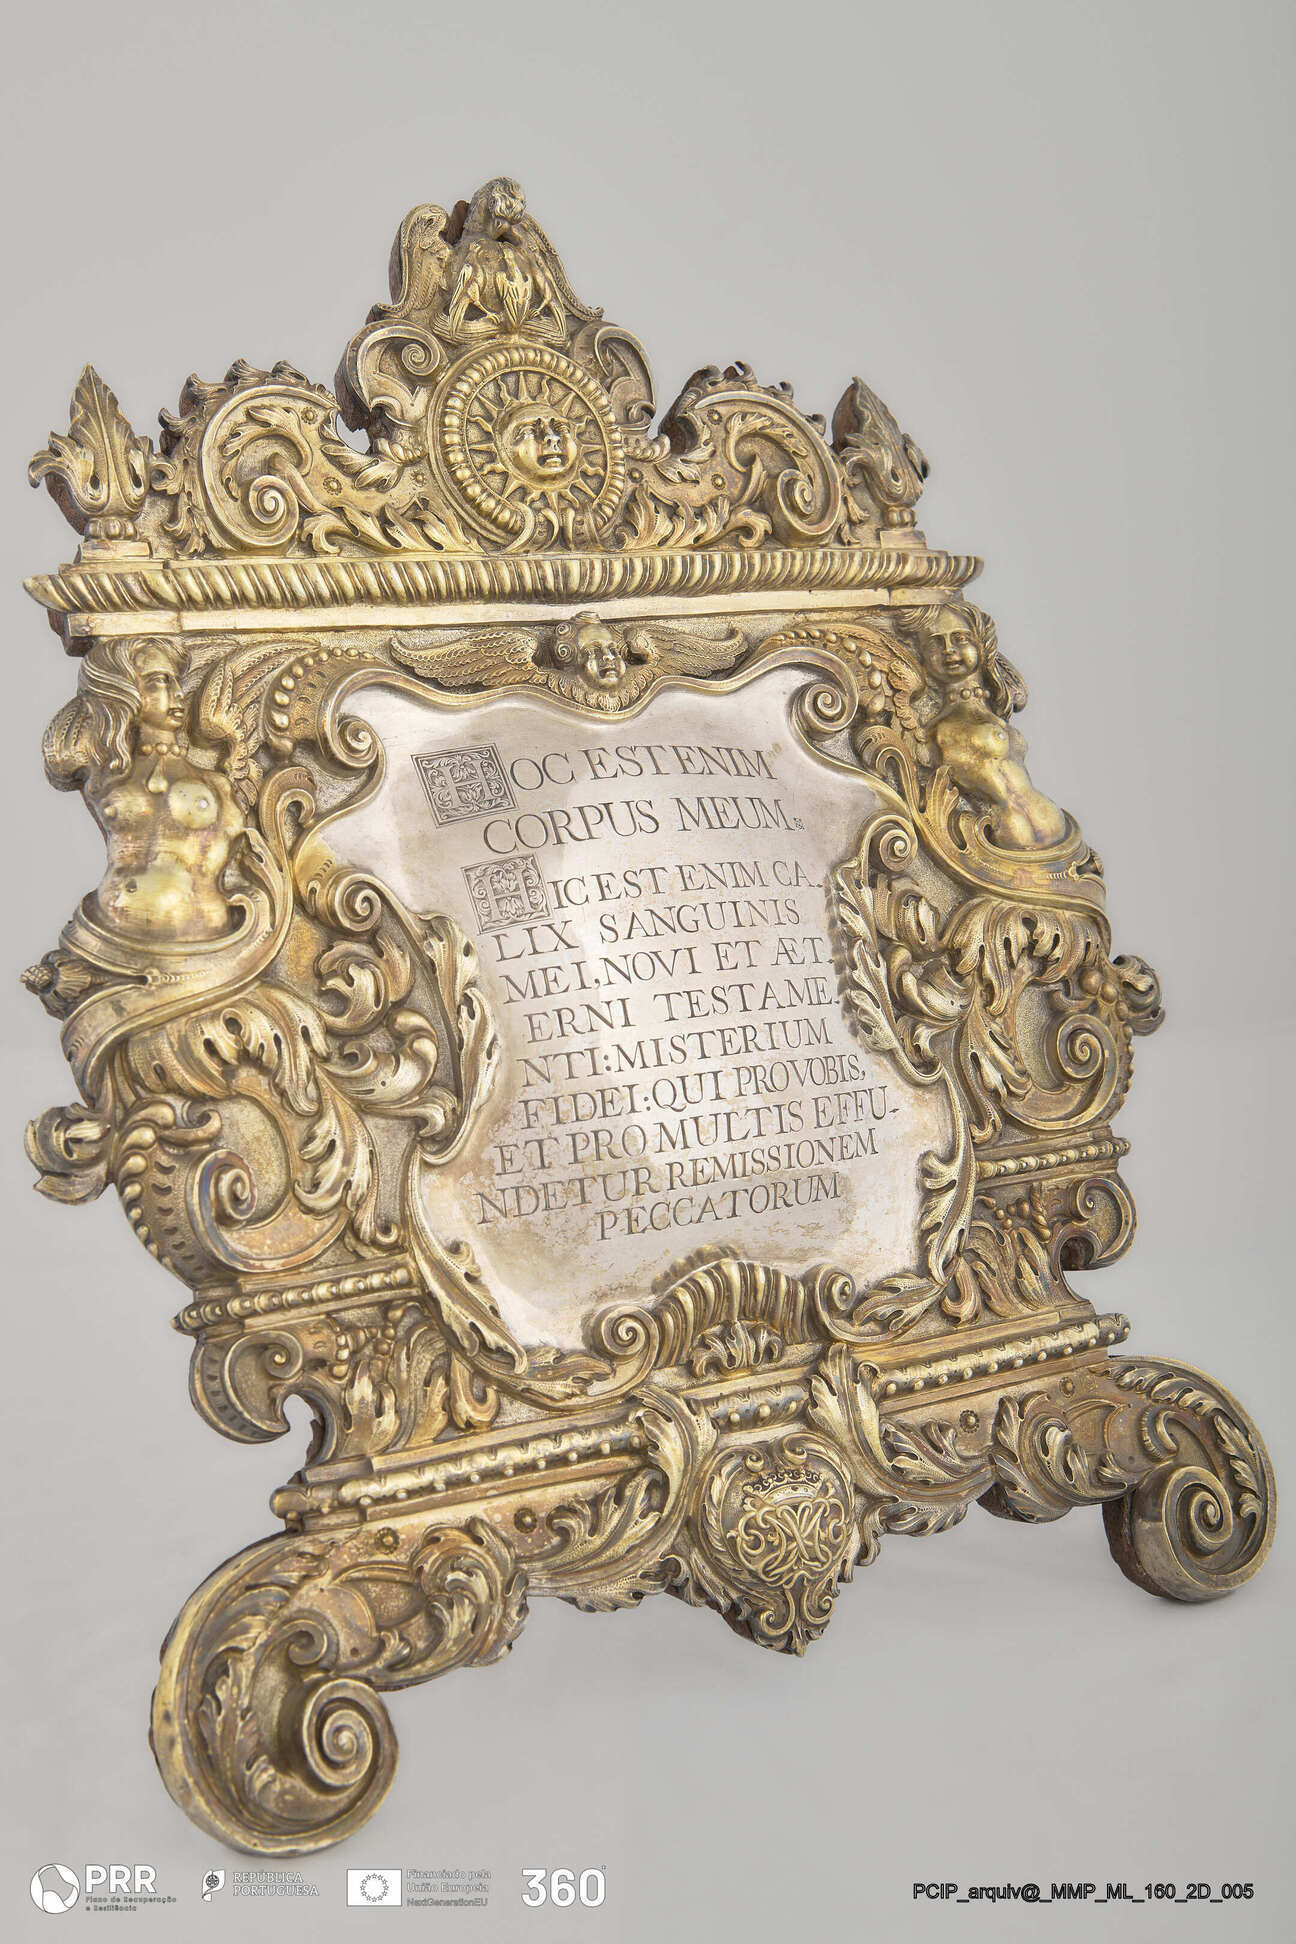 HOC EST ENIM
CORPUS MEUM.
HIC EST ENIM CA-
LIX SANGUINIS
MEI, NOVI ET ÆT-
ERNI TESTAME-
NTI: MISTERIUM
FIDEI: QUI PRO VOBIS,
ET PRO MULTIS EFFU-
NDETUR REMISSIONEM
PECCATORUM
PRR
Plano de Recuperação
e Resiliência
REPÚBLICA
PORTUGUESA
Financiado pela
União Europeia
NextGenerationEU
360°
PCIP_arquiv@_MMP_ML_160_2D_005